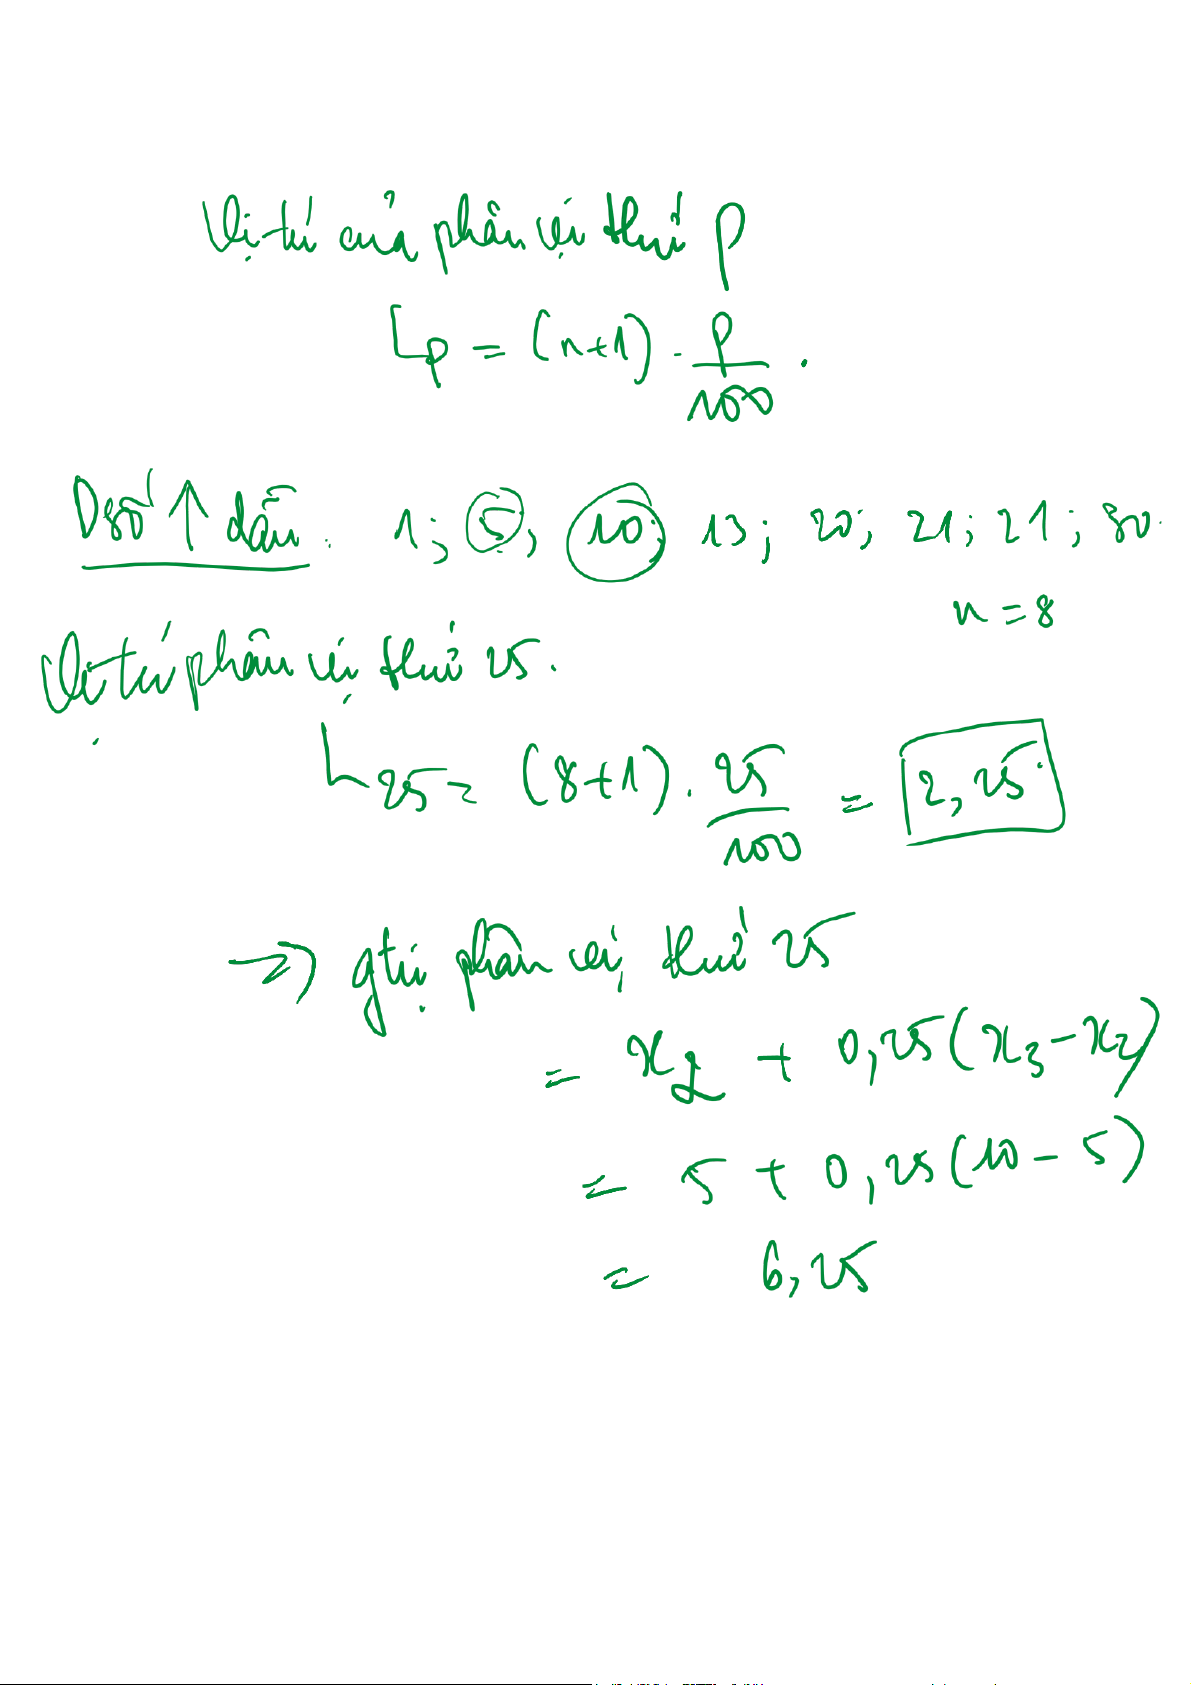 Vị trí của phân vị thứ p
Lp = (n+1) · p/100 .
Dsố ↑ dần : 1; 5; 10; 13; 20; 21; 21; 30.
n = 8
Vị trí phân vị thứ 25.
L25 = (8+1) · 25/100 = 2,25.
=> gtrị phân vị thứ 25
= x2 + 0,25(x3 - x2)
= 5 + 0,25(10 - 5)
= 6,25